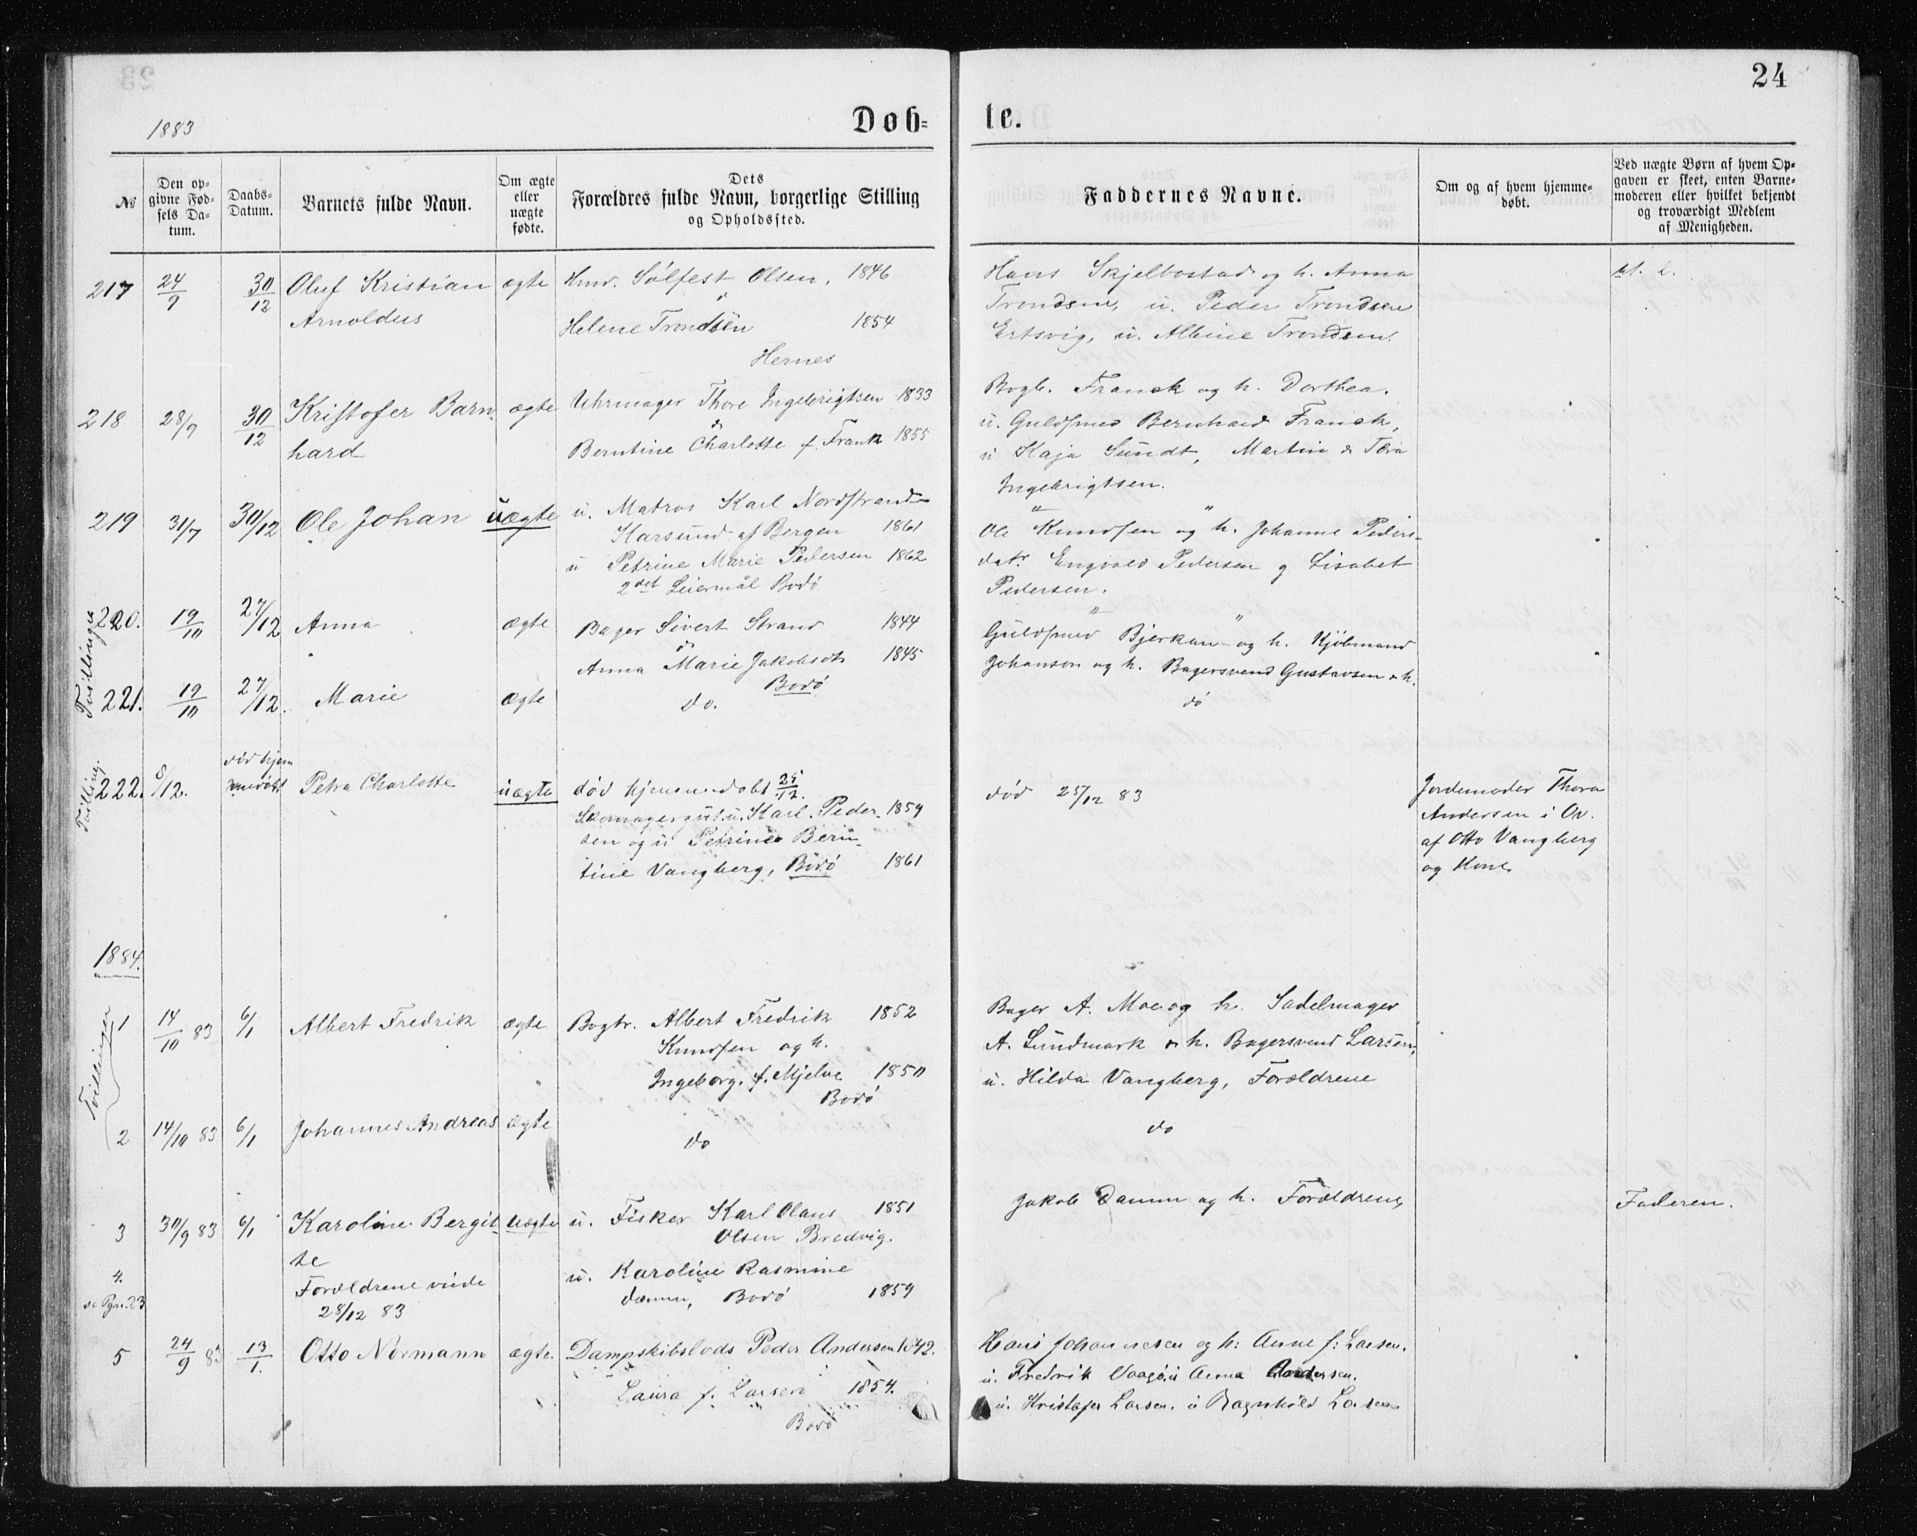 24
1883
Døb=
te.
№
Den op-
givne Fød-
sels Da-
tum.
Daabs-
Datum.
Barnets fulde Navn.
Om ægte
eller
uægte
fødte.
Dets
Forældres fulde Navn, borgerlige Stilling
og Opholdssted.
Faddernes Navne.
Om og af hvem hjemme-
døbt.
Ved uægte Børn af hvem Op-
gaven er skeet, enten Barne-
moderen eller hvilket bekjendt
og troværdigt Medlem
af Menigheden.
217 24/9 30/12 Oluf Kristian ægte Hmd. Sølfest Olsen, 1846
Arnoldus
Helene Trondsen 1854
Hernes
Hans Skjelbostad og h. Anna
Trondsen, u. Peder Trondsen
Ertsvig, u. Albine Trondsen.
218 28/9 30/12 Kristofer Barn- ægte Uhrmager Thore Ingebrigtsen 1833
hard Berntine Charlotte f. Frank 1855
Bogb. Franck og h. Dorthea.
u. Guldsmed Bernhard Franck,
u Kaja Sundt, Martin & Thea
Ingebrigtsen.
219 31/7 30/12 Ole Johan uægte u. Matros Karl Nordstrand
Karsund af Bergen 1861
u Petrine Marie Pedersen 1862
2det Leiermål Bodø
Ole Knudsen og h. Johanne Peders-
datr Engvald Pedersen g Lisabet
Pedersen.
Tvillinger
220. 19/10 27/12 Anna ægte Bager Sivert Strand 1844
Anna Marie Jakobsdtr 1845
Bodø
Guldsmed Bjerkan og h. Kjöbmand
Johanson og h. Bagersvend Gustavsen & h.
221. 19/10 27/12. Marie ægte do.
do
Tvilling.
222. 8/12. død hjem
medøbt Petra Charlotte uægte død hjemmedøbt 25/12
Skomagergut u. Karl Peder- 1859
sen og u Petrine Bern-
tine Vangberg, Bodø 1861
død 25/12 83
Jordemoder Thora
Andersen i Ov.
af Otto Vangberg
og Kone
1884.
Tvillinger
1 14/10 83 6/1 Albert Fredrik ægte Bogtr. Albert Fredrik 1852
Knudsen og h.
Ingeborg f. Mjelve 1850
Bodø
Bager A. Moe og h. Sadelmager
A. Lundmark & h. Bagersvend Larsen,
u. Hilda Vangberg, Forældrene
2 14/10 83 6/1 Johannes Andreas ægte do
do
3 30/9 83 6/1 Karoline Bergit- uægte u. Fisker Karl Olaus 1851
te Olsen Bredvig.
Forældrene viede u. Karoline Rasmine
28/12 83 Damm, Bodø 1859
Jakob Damm og h. Forældrene,
Faderen.
4.
se Pgn. 23
5 24/9 83 13/1. Otto Normann ægte. Dampskibslods Peder Andersen 1842.
Laura f. Larsen 1854.
Bodø
Hans Johannesen og h: Anne f: Larsen.
u. Fredrik Vaagø. u Anna Andersen.
u. Kristofer Larsen. u Ragnhild Larsen